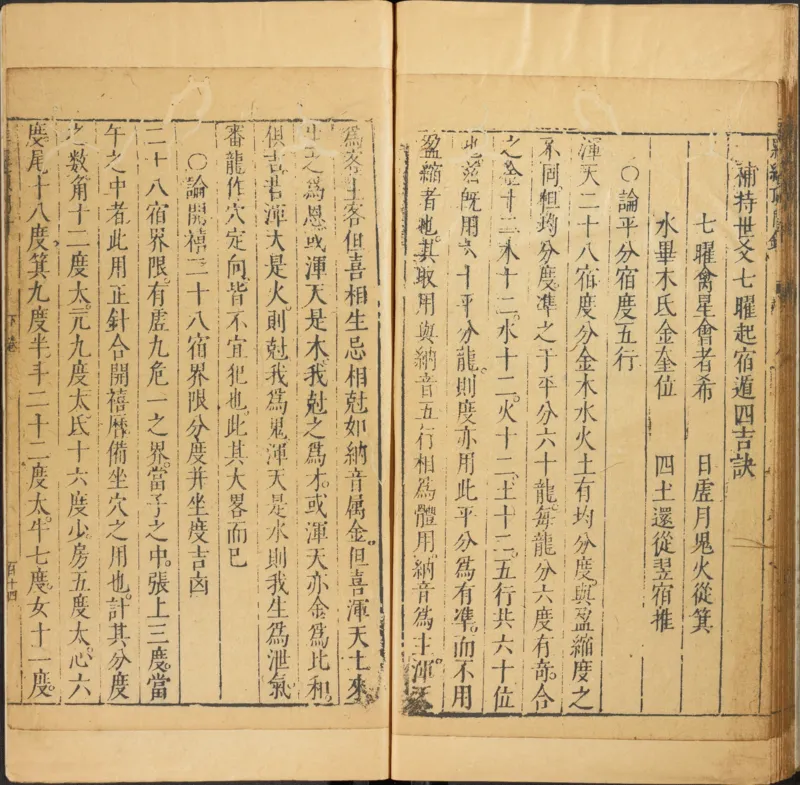 補持世爻七曜起宿遁四吉訣
七曜禽星會者希 日虛月鬼火從箕
水畢木氐金奎位 四土還從翌宿推
○論平分宿度五行
渾天二十八宿度分金木水火土有均分度與盈縮度之
不同但均分度準之于平分六十龍每龍分六度有奇合
之金十二木十二水十二火十二土十二五行共六十位
既用六十平分龍則度亦用此平分爲有準而不用
盈縮者也其取用與納音五行相爲體用納音爲主渾天
爲客主客但喜相生忌相尅如納音属金但喜渾天土來
生之爲恩或渾天是木我尅之爲才或渾天亦金爲比和
俱吉若渾天是火則尅我爲鬼渾天是水則我生爲泄氣
審龍作穴定向皆不宜犯也此其大畧而已
○論開禧二十八宿界限分度并坐度吉凶
二十八宿界限有虛九危一之界當子之中張上三度當
午之中者此用正針合開禧曆備坐穴之用也計其分度
之数角十二度太亢九度太氐十六度少房五度太心六
度尾十八度箕九度半斗二十二度太牛七度女十一度
下卷
百十四